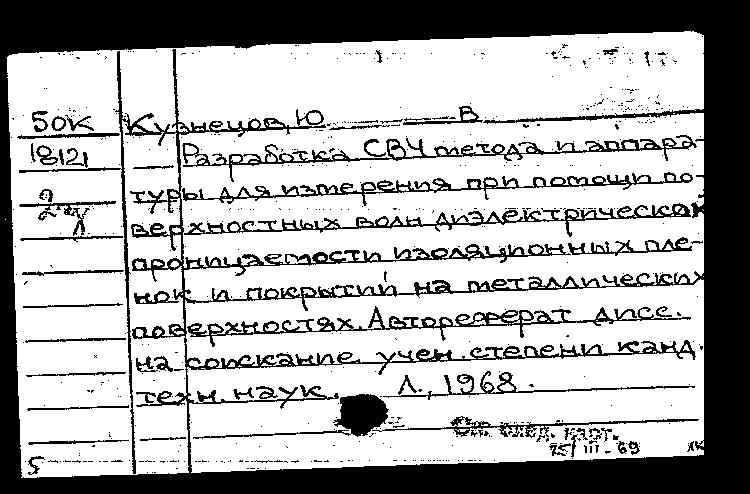 50К Кузнецов, Ю В
18121 Разработка СВЧ метода и аппара-
туры для измерения при помощи по-
верхностных волн диэлектрической
проницаемости изоляционных пле-
нок и покрытий на металлических
поверхностях. Автореферат дисс.
на соискание учен. степени канд.
техн. наук. Л., 1968.
См. след. карт.
25/III-69 ЛК
5